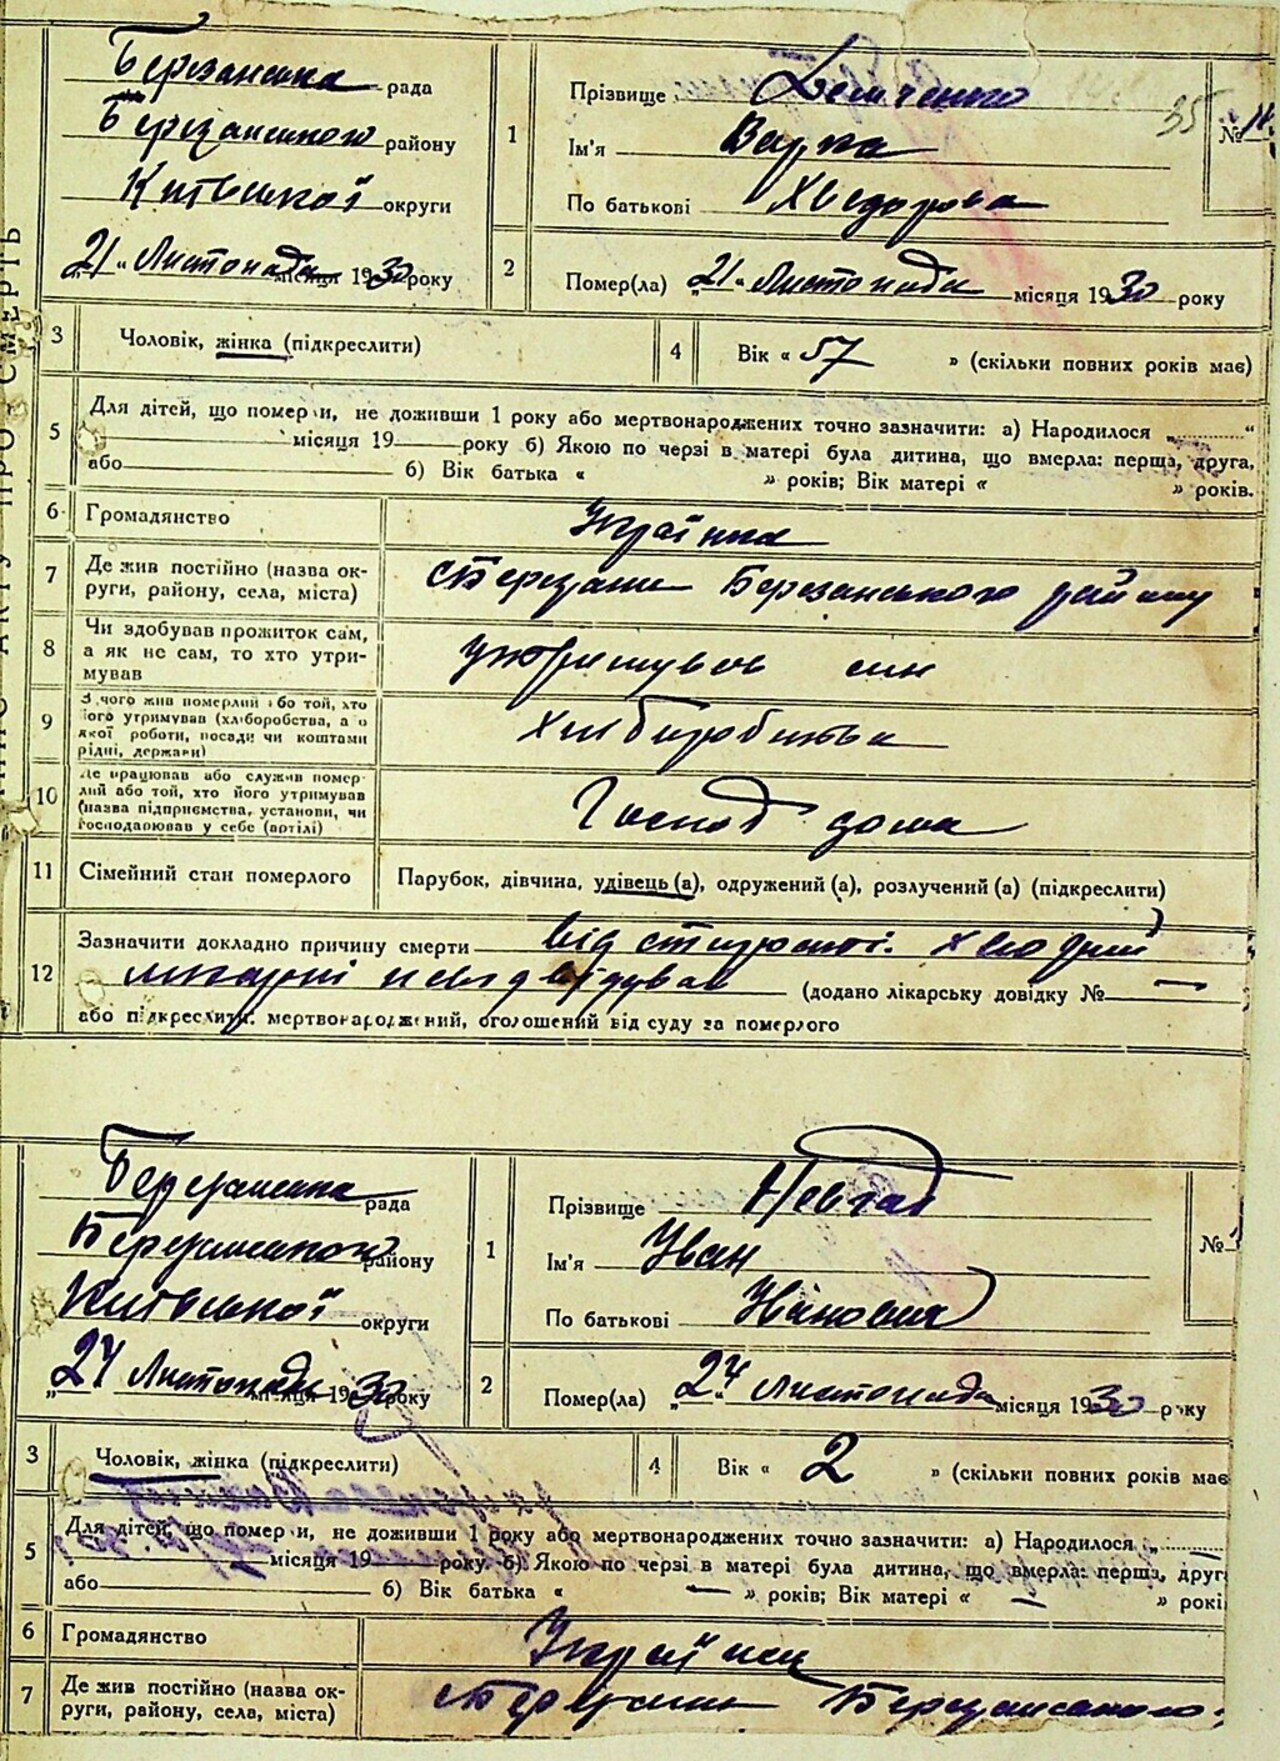 Березанська рада
Березанського району
Київської округи
„21“ Листопада місяця 1930 року
1
Прізвище Демченко
Ім'я Варка
По батькові Хведорова
35
№
2
Помер(ла) „21“ Листопада місяця 1930 року
3
Чоловік, жінка (підкреслити)
4
Вік « 57 » (скільки повних років має)
5
Для дітей, що померли, не доживши 1 року або мертвонароджених точно зазначити: а) Народилося „ “
місяця 19 року б) Якою по черзі в матері була дитина, що вмерла: перша, друга,
або б) Вік батька « » років; Вік матері « » років.
6
Громадянство Українка
7
Де жив постійно (назва ок-
руги, району, села, міста)
с Березань Березанського району
8
Чи здобував прожиток сам,
а як не сам, то хто утри-
мував
утримував син
9
З чого жив померлий або той, хто
його утримував (хліборобства, а о
якої роботи, посади чи коштами
рідні, держави)
10
Де працював або служив помер-
лий або той, хто його утримував
(назва підприємства, установи, чи
господарював у себе (артілі)
Господ дома
11
Сімейний стан померлого
Парубок, дівчина, удівець (а), одружений (а), розлучений (а) (підкреслити)
12
Зазначити докладно причину смерти від старости.
(додано лікарську довідку № —
або підкреслити: мертвонароджений, оголошений від суду за померлого
Березанська рада
Березанського району
Київської округи
„24 Листопада місяця 1930 року
1
Прізвище
Ім'я Іван
По батькові Іванович
№
2
Помер(ла) „24“ Листопада місяця 1930 року
3
Чоловік, жінка (підкреслити)
4
Вік « 2 » (скільки повних років має
5
Для дітей, що померли, не доживши 1 року або мертвонароджених точно зазначити: а) Народилося „
місяця 19 року. б) Якою по черзі в матері була дитина, що вмерла: перша, друг
або б) Вік батька « — » років; Вік матері « — » рокі
6
Громадянство Українец
7
Де жив постійно (назва ок-
руги, району, села, міста)
с Березань Березанського